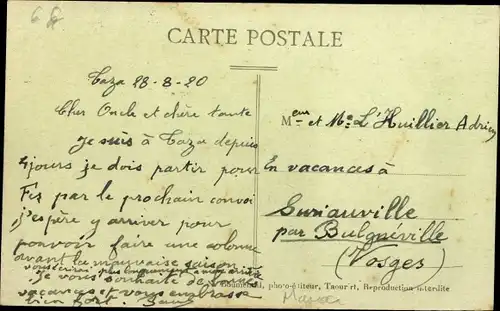 CARTE POSTALE
Taza 28-8-20
Cher Oncle et chère tante
Je suis à Taza depuis
5 jours je dois partir pour
Fez par le prochain convoi
j'espère y arriver pour
pouvoir faire une colonne
avant la mauvaise saison
vous écrirai plus longuement à mon arrivée
je vous souhaite de bonnes
vacances et vous embrasse
bien fort
Meur et Me L'Huillier Adrien
En vacances à
Suriauville
par Bulgnéville
(Vosges)
photo-éditeur, Taourirt, Reproduction interdite
Maroc